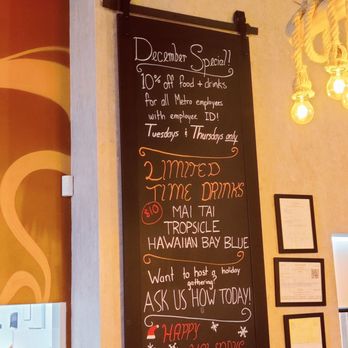 December Special!
10% off food + drinks
for all Metro employees
with employee ID!
Tuesdays & Thursdays only
LIMITED
TIME DRINKS
$10
MAI TAI
TROPSICLE
HAWAIIAN BAY BLUE
Want to host a holiday
gathering?
ASK US HOW TODAY!
HAPPY
HOLIDAYS